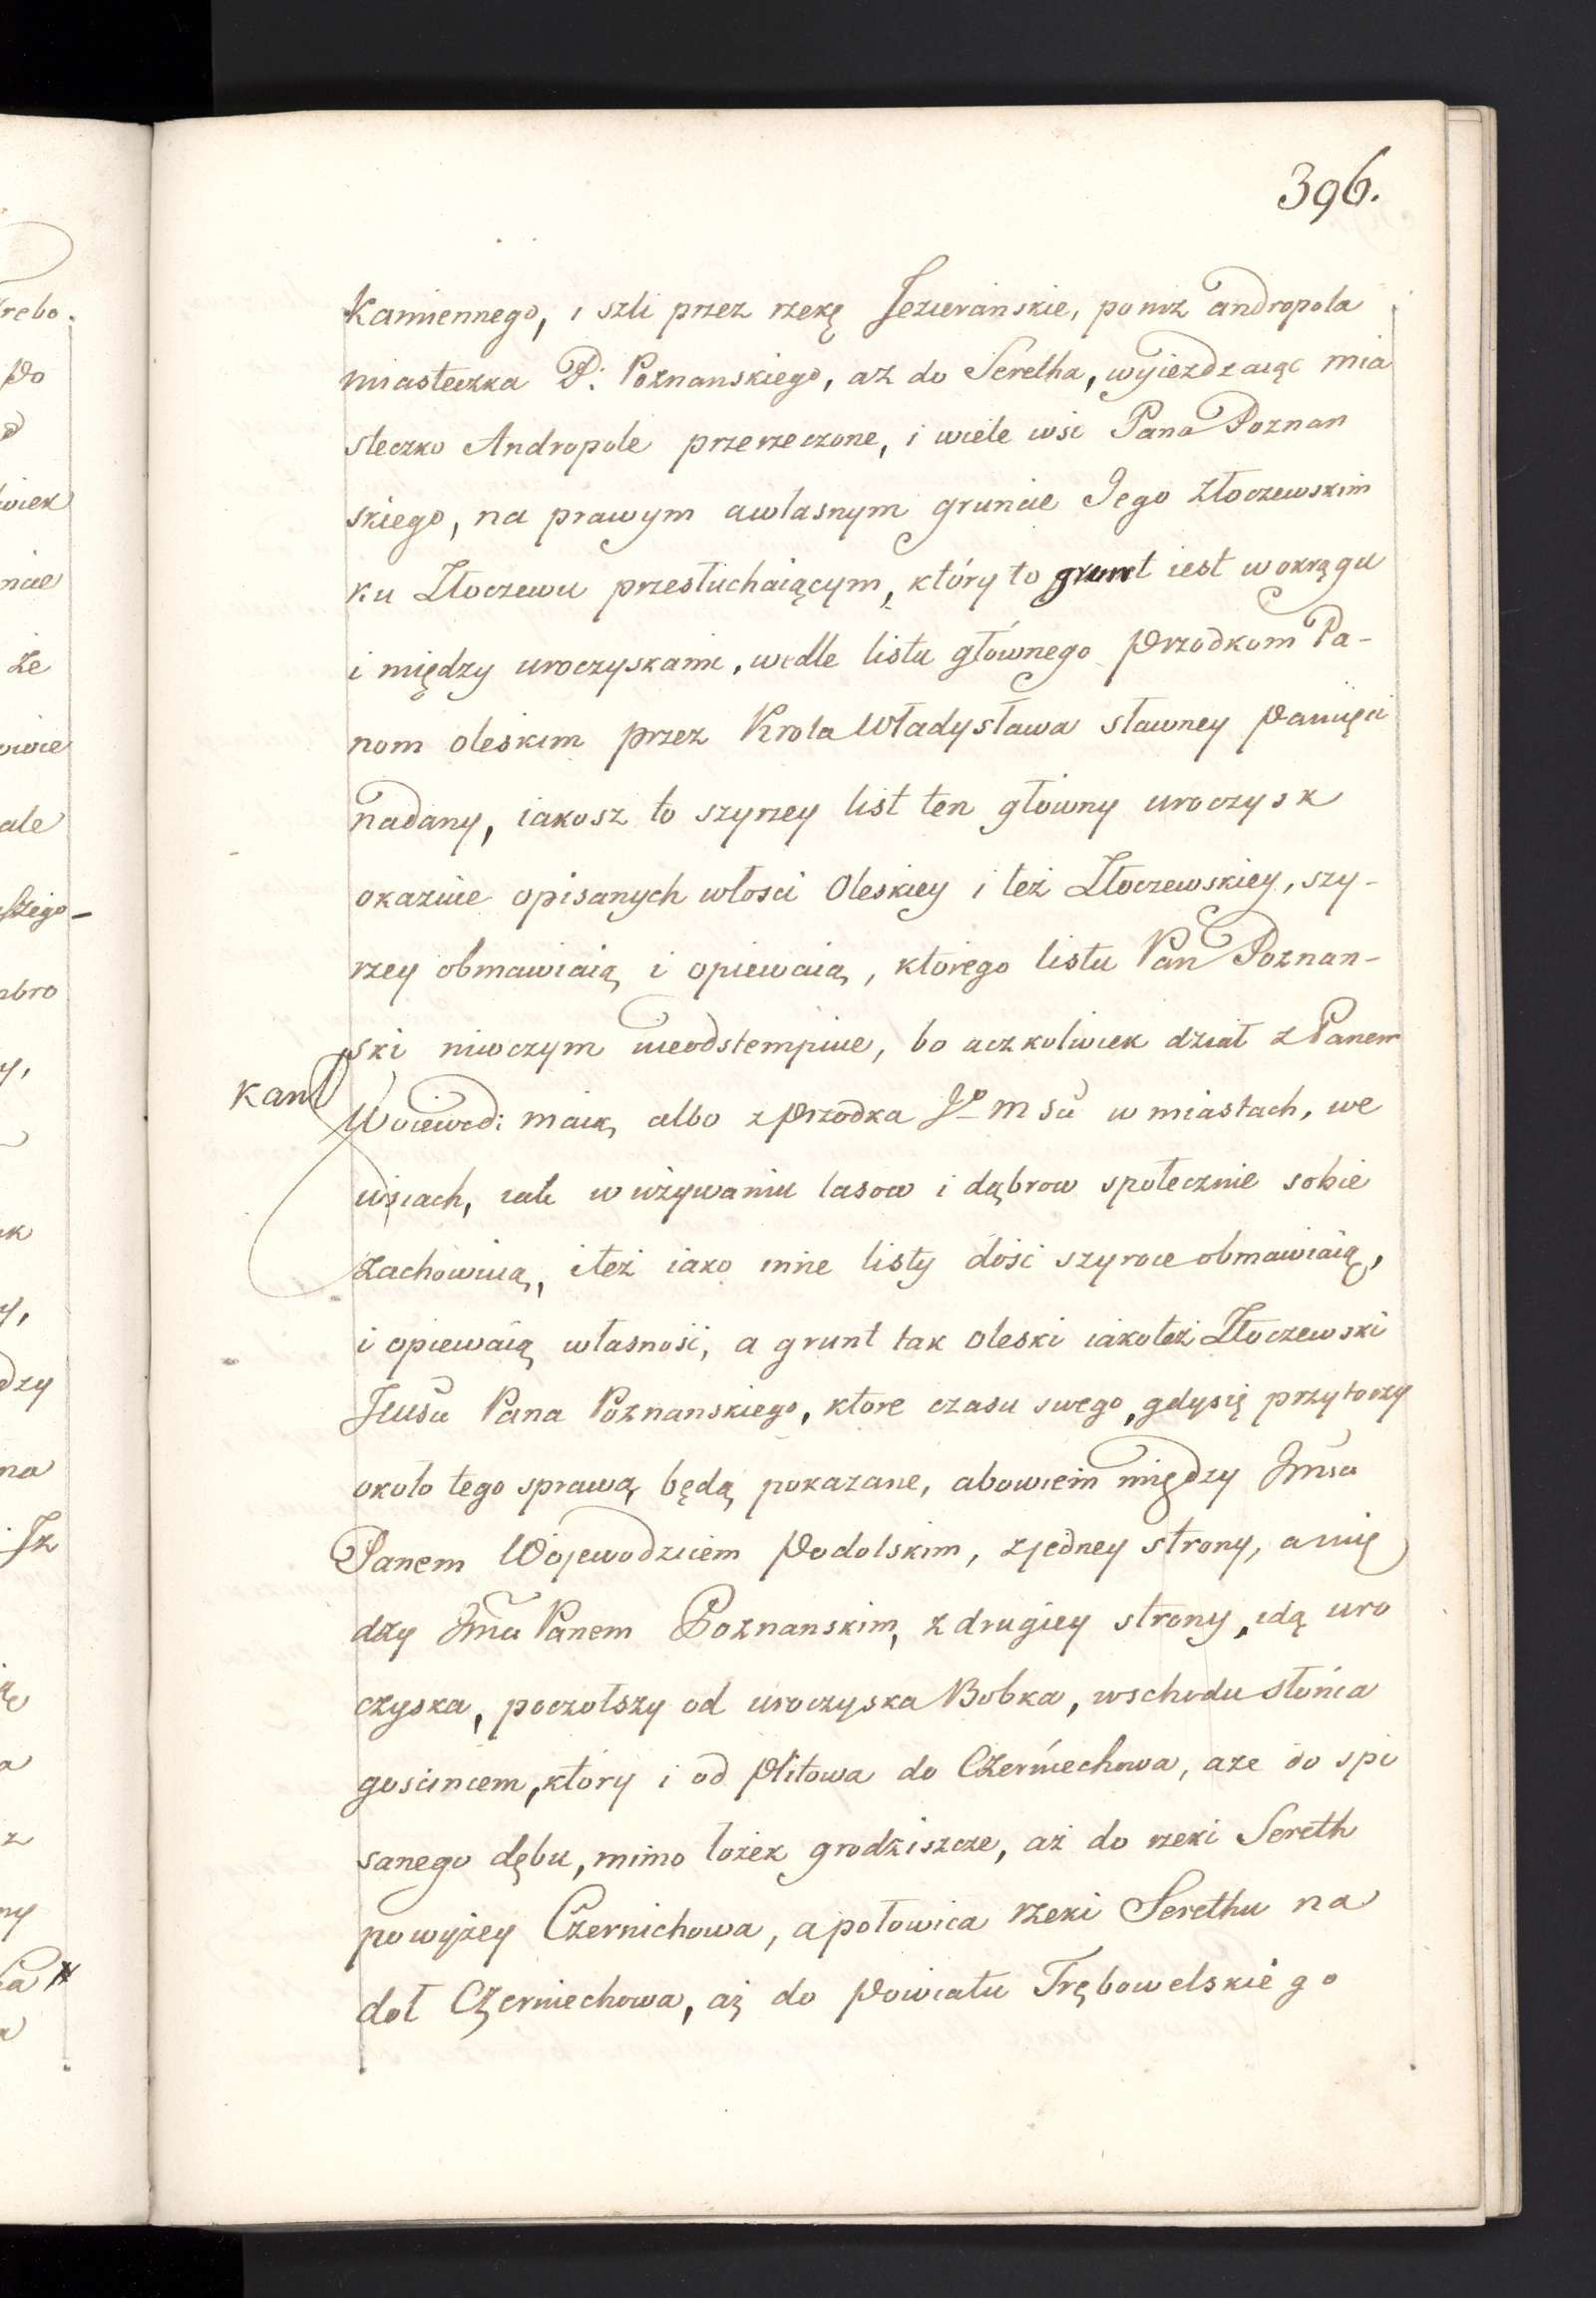 396.
Kamiennego, i szli przez rzekę Jezierańskie, poniz andropola
miasteczka P: Poznanskiego, aż do Seretha, wyiezdzaiąc mia
steczko Andropole przerzeczone, i wiele wsi Pana Poznan
skiego, na prawym awlasnym gruncie Jego złoczewskim
ku Złoczewu przesłuchaiącym, który to grunt iest wokrągu
i między uroczyskami, wedle listu głównego Przodkom Pa-
nom oleskim przez Krola Władysława sławney Pamięci
nadany, iakosz to szyrzey list ten główny uroczysk
okazuie opisanych włosci Oleskiey i też Złoczewskiey, szy-
rzey obmawiaią i opiewaią, którego listu Pan Poznan-
ski niwczym nieodstempiue, bo aczkolwiek dział z Panem
Kam
Woiewodi maią albo z przodka Jo msu w miastach, we
wsiach, tak w używaniu lasow i dąbrow społecznie sobie
zachowuią, iteż iako inne listy dość szyroce obmawiaią,
i opiewaią własność, a grunt tak oleski iakoteż Złoczewski
Jmsu Pana Poznanskiego, ktore czasu swego, gdysię przytoczy
około tego sprawa, będą pokazane, abowiem między Jmsu
Panem Wojewodzicem Podolskim, zjedney strony, a mię
dzy Jmsu Panem Poznanskim, z drugiey strony, idą uro
czyska, początszy od uroczyska Bobka, wschodu słońca
goscincem, ktory i od Plitowa do Czerniechowa, aże do spi
sanego dębu, mimo łozek grodziszcze, aż do rzeki Sereth
powyżey Czernichowa, apołowica rzeki Serethu na
doł Czerniechowa, aż do Powiatu Trębowelskiego